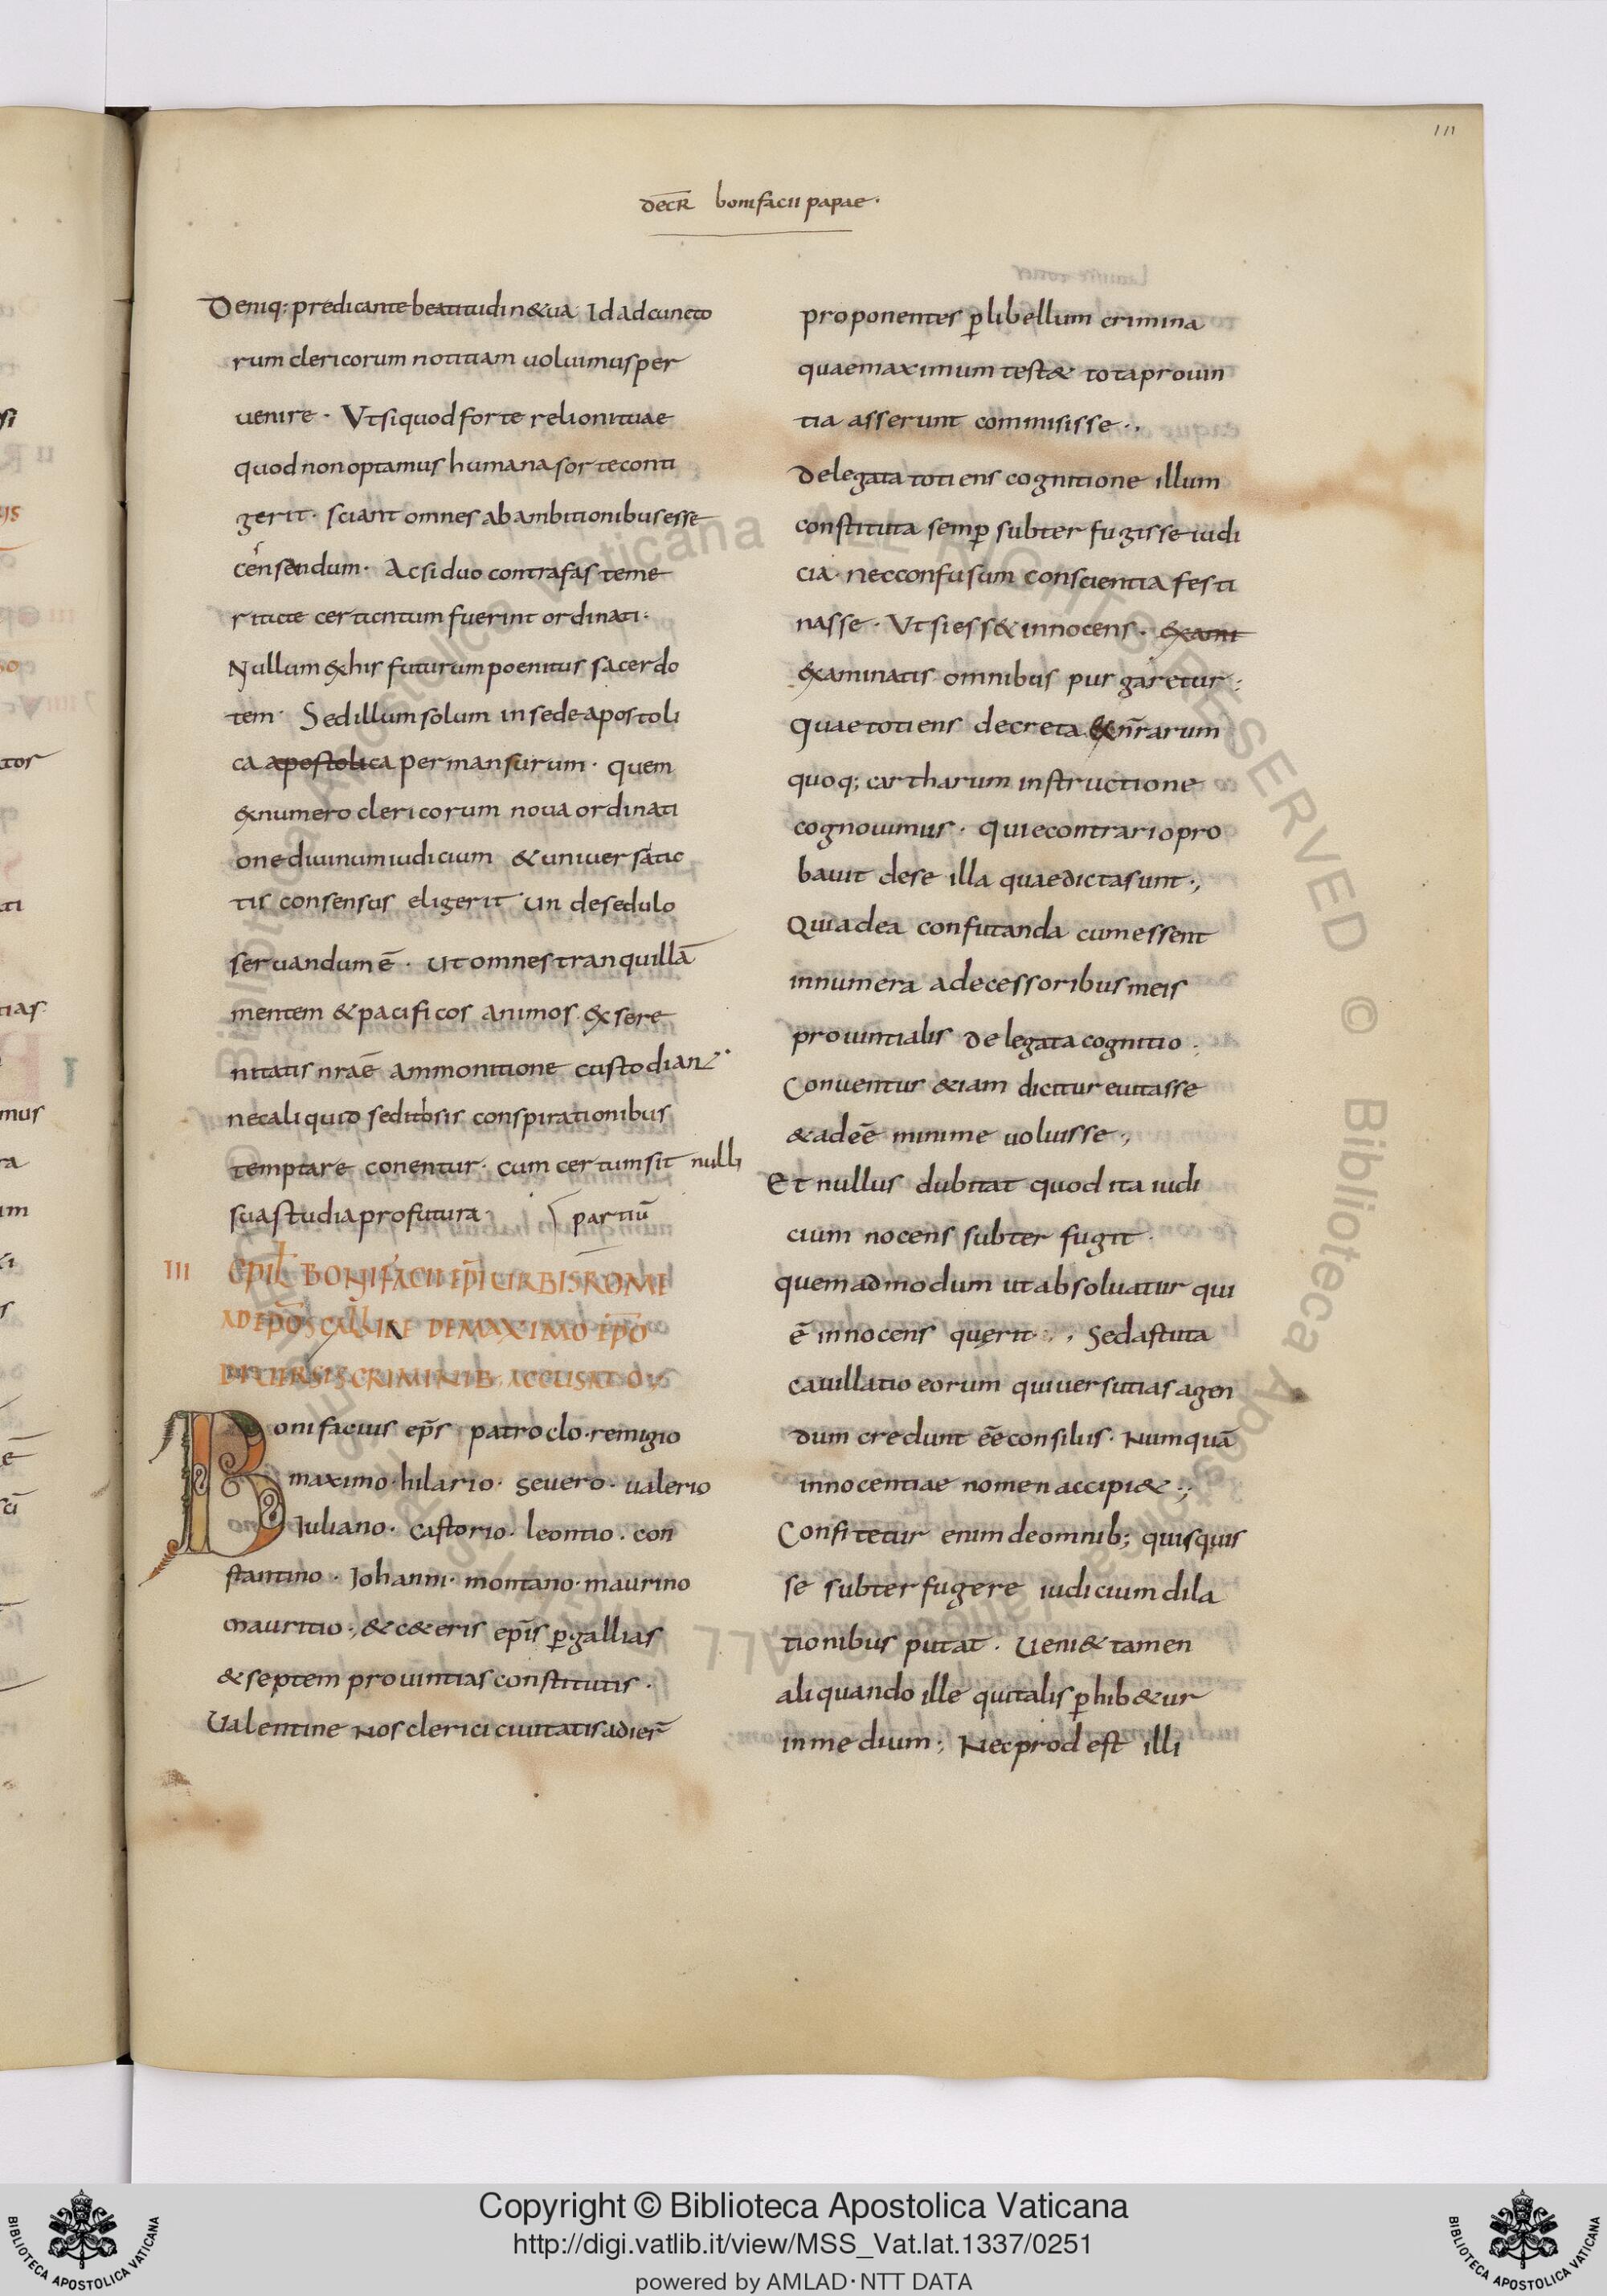 111
decr̄ bonifacii papae ·
Deniq: predicante beatitudin&ua Id ad cuncto
rum clericorum notitiam uoluimus per
uenire · Vt si quod forte relioni tuae
quod non optamus humana sorte conti
gerit · sciant omnes ab ambitionibus esse
censendum · Ac si duo contra fas teme
Nullum &his futurum poenitus sacerdo
tem · Sed illum solum in sede apostoli
ca apostolica permansurum · quem
&numero clericorum noua ordinati
one diuinum iudicium & uniuersatic
tis consensus eligerit Un de sedulo
seruandum ē · ut omnes tranquillā
mentem & pacificos animos &sere
nitatis nrāe ammonitione custodian
nec aliquid seditiosis conspirationibus
temptare conentur · cum certum sit nulli
sua studia profutura · partiū
III EPIL BONIFACII EPI URBIS ROME
AD EPOS GALLIAE DE MAXIMO EPO
DIUERSIS CRIMINIB · ACCUSATO
Bonifacius ep̄s patroclo · remigio
maximo · hilario · seuero · ualerio
Iuliano · castorio · leontio · con
stantino · Iohanni · montano · maurino
mauritio ·, & c&eris ep̄is p̱ gallias
& septem prouintias constitutis ·
Ualentine Nos clerici ciuitatis adier̄
proponentes p̱ libellum crimina
quae maximum test& tota prouin
tia asserunt commisisse ·,
Delegata totiens cognitione illum
constituta semp̱ subter fugisse iudi
cia · nec confusum conscientia festi
nasse · Vt si ess& innocens · &ami
&aminatis omnibus purgaretur ·
quae totiens decreta & nr̄arum
quoq; cartharum instructione
cognouimus · qui econtrario pro
bauit de se illa quae dicta sunt ·,
Quia dea confutanda cum essent
innumera adecessoribus meis
prouintialis delegata cognitio ·
Conuentur &iam dicitur euitasse
& adeē minime uoluisse ·,
Et nullus dubitat quod ita iudi
cium nocens subter fugit ·
quem ad modum ut absoluatur qui
ē innocens querit · , Sed astuta
cauillatio eorum qui uersutias agen
dum credunt ēē consiliis · Numquā
innocentiae nomen accipi& ·,
Confitetur enim de omnib; quisquis
se subter fugere iudicium dila
tionibus putat · Ueni& tamen
aliquando ille qui talis p̱hib&ur
in medium ; Nec prodest illi
Copyright © Biblioteca Apostolica Vaticana
http://digi.vatlib.it/view/MSS_Vat.lat.1337/0251
powered by AMLAD·NTT DATA